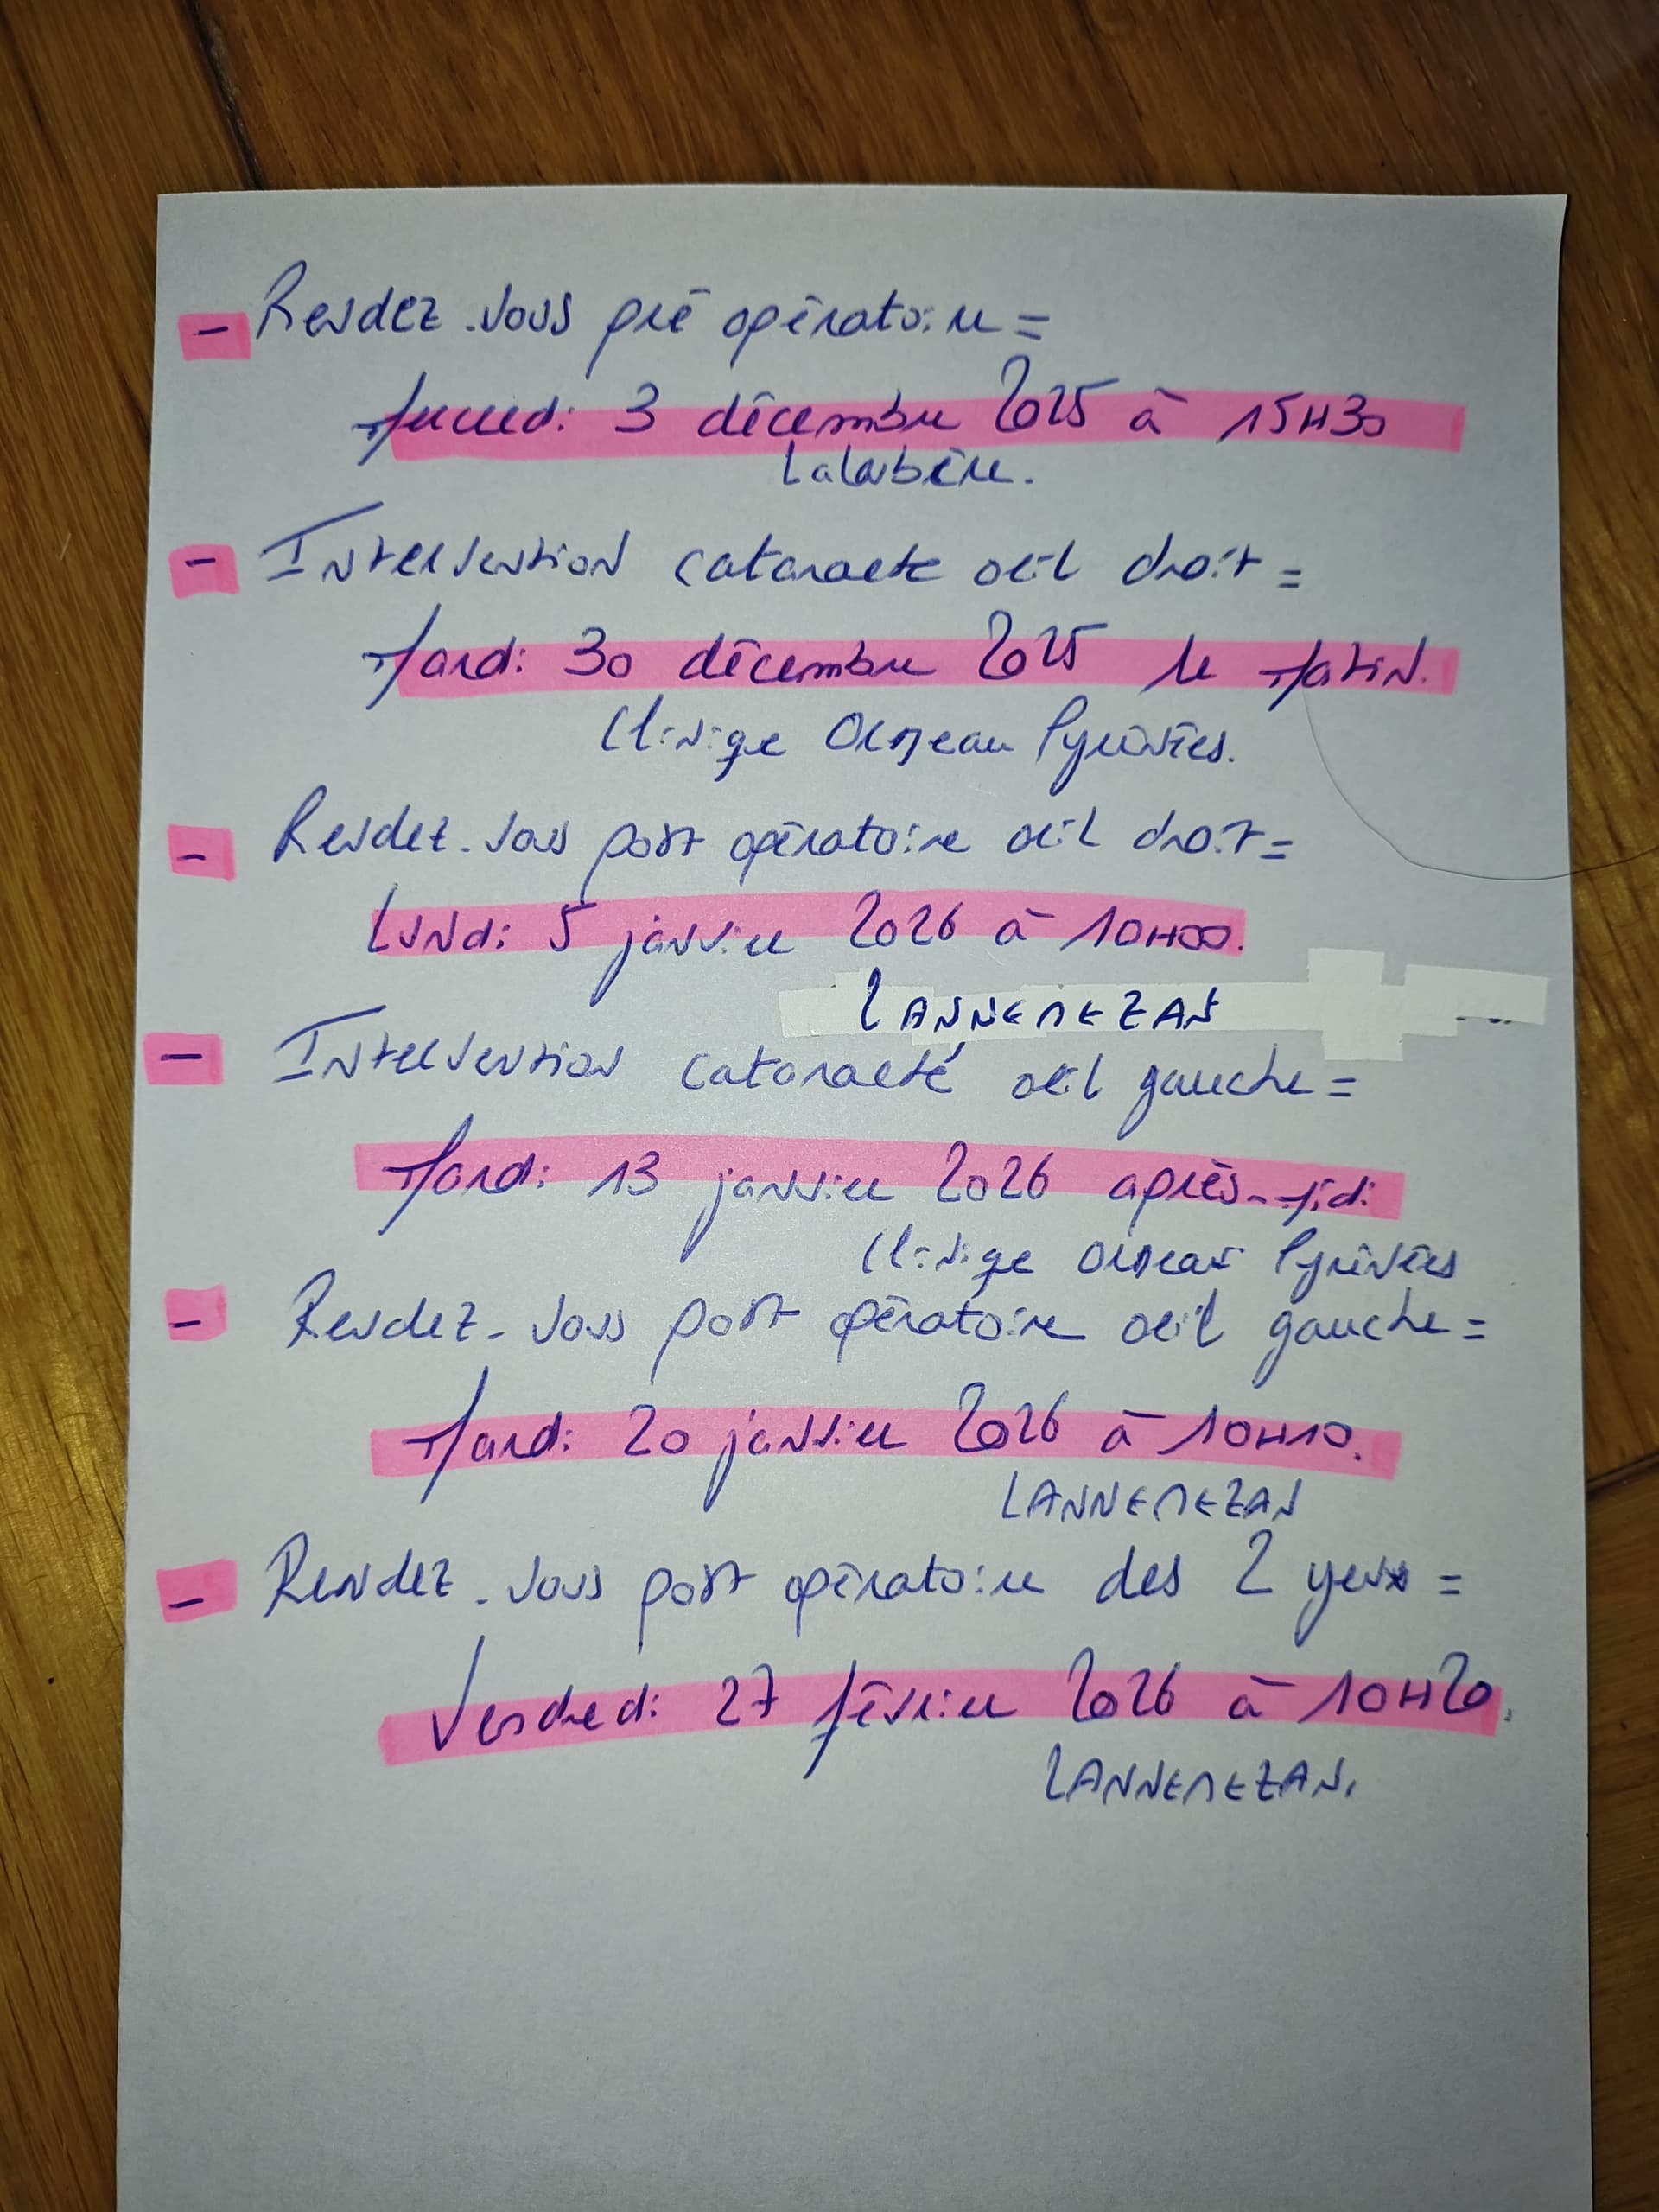 - Rendez-vous pré opératoire =
Mercredi 3 décembre 2025 à 15H30
Laloubère.
- Intervention cataracte oeil droit =
Mardi 30 décembre 2025 le Matin.
Clinique Ormeau Pyrénées.
- Rendez-vous post opératoire oeil droit =
Lundi 5 janvier 2026 à 10H00.
LANNEMEZAN
- Intervention cataracté oeil gauche =
Mardi 13 janvier 2026 après-Midi
Clinique Ormeau Pyrénées
- Rendez-vous post opératoire oeil gauche =
Mardi 20 janvier 2026 à 10H10.
LANNEMEZAN
- Rendez-vous post opératoire des 2 yeux =
Vendredi 27 février 2026 à 10H20.
LANNEMEZAN.